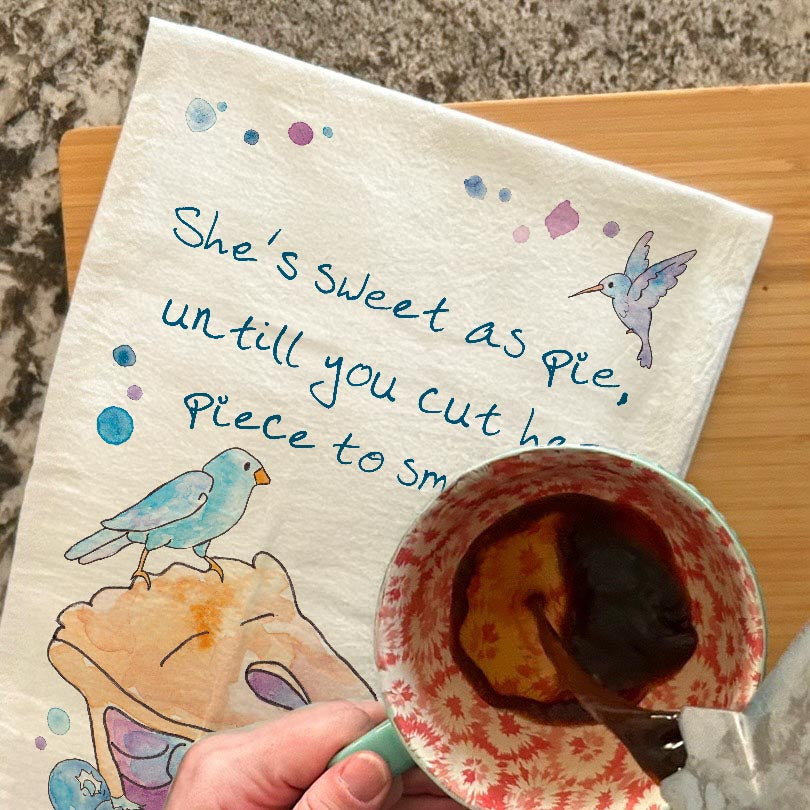 She's sweet as pie,
untill you cut
piece to